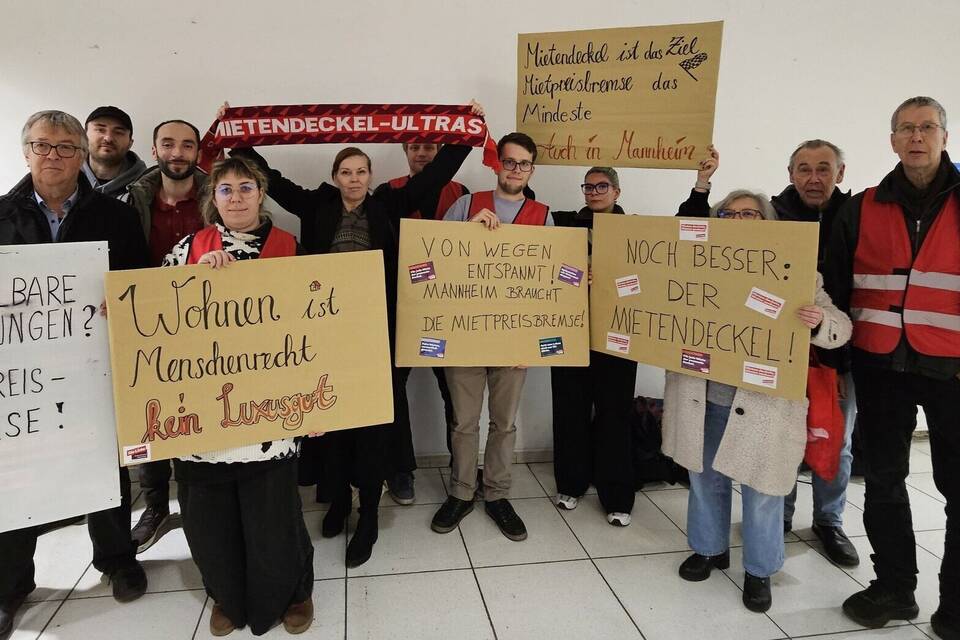 MIETENDECKEL-ULTRAS
Mietendeckel ist das Ziel
Mietpreisbremse das
Mindeste
Auch in Mannheim
LBARE
UNGEN?
REIS-
SE!
Wohnen ist
Menschenrecht
kein Luxusgut
VON WEGEN
ENTSPANNT!
MANNHEIM BRAUCHT
DIE MIETPREISBREMSE!
NOCH BESSER:
DER
MIETENDECKEL!